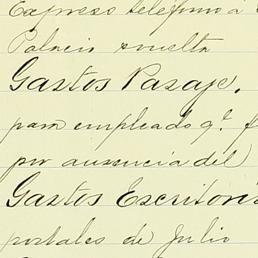 Expreso telefono á
Palacio vuelta
Gastos Pasaje.
para empleado qe. f
por ausencia del
Gastos Escritori
postales de Julio